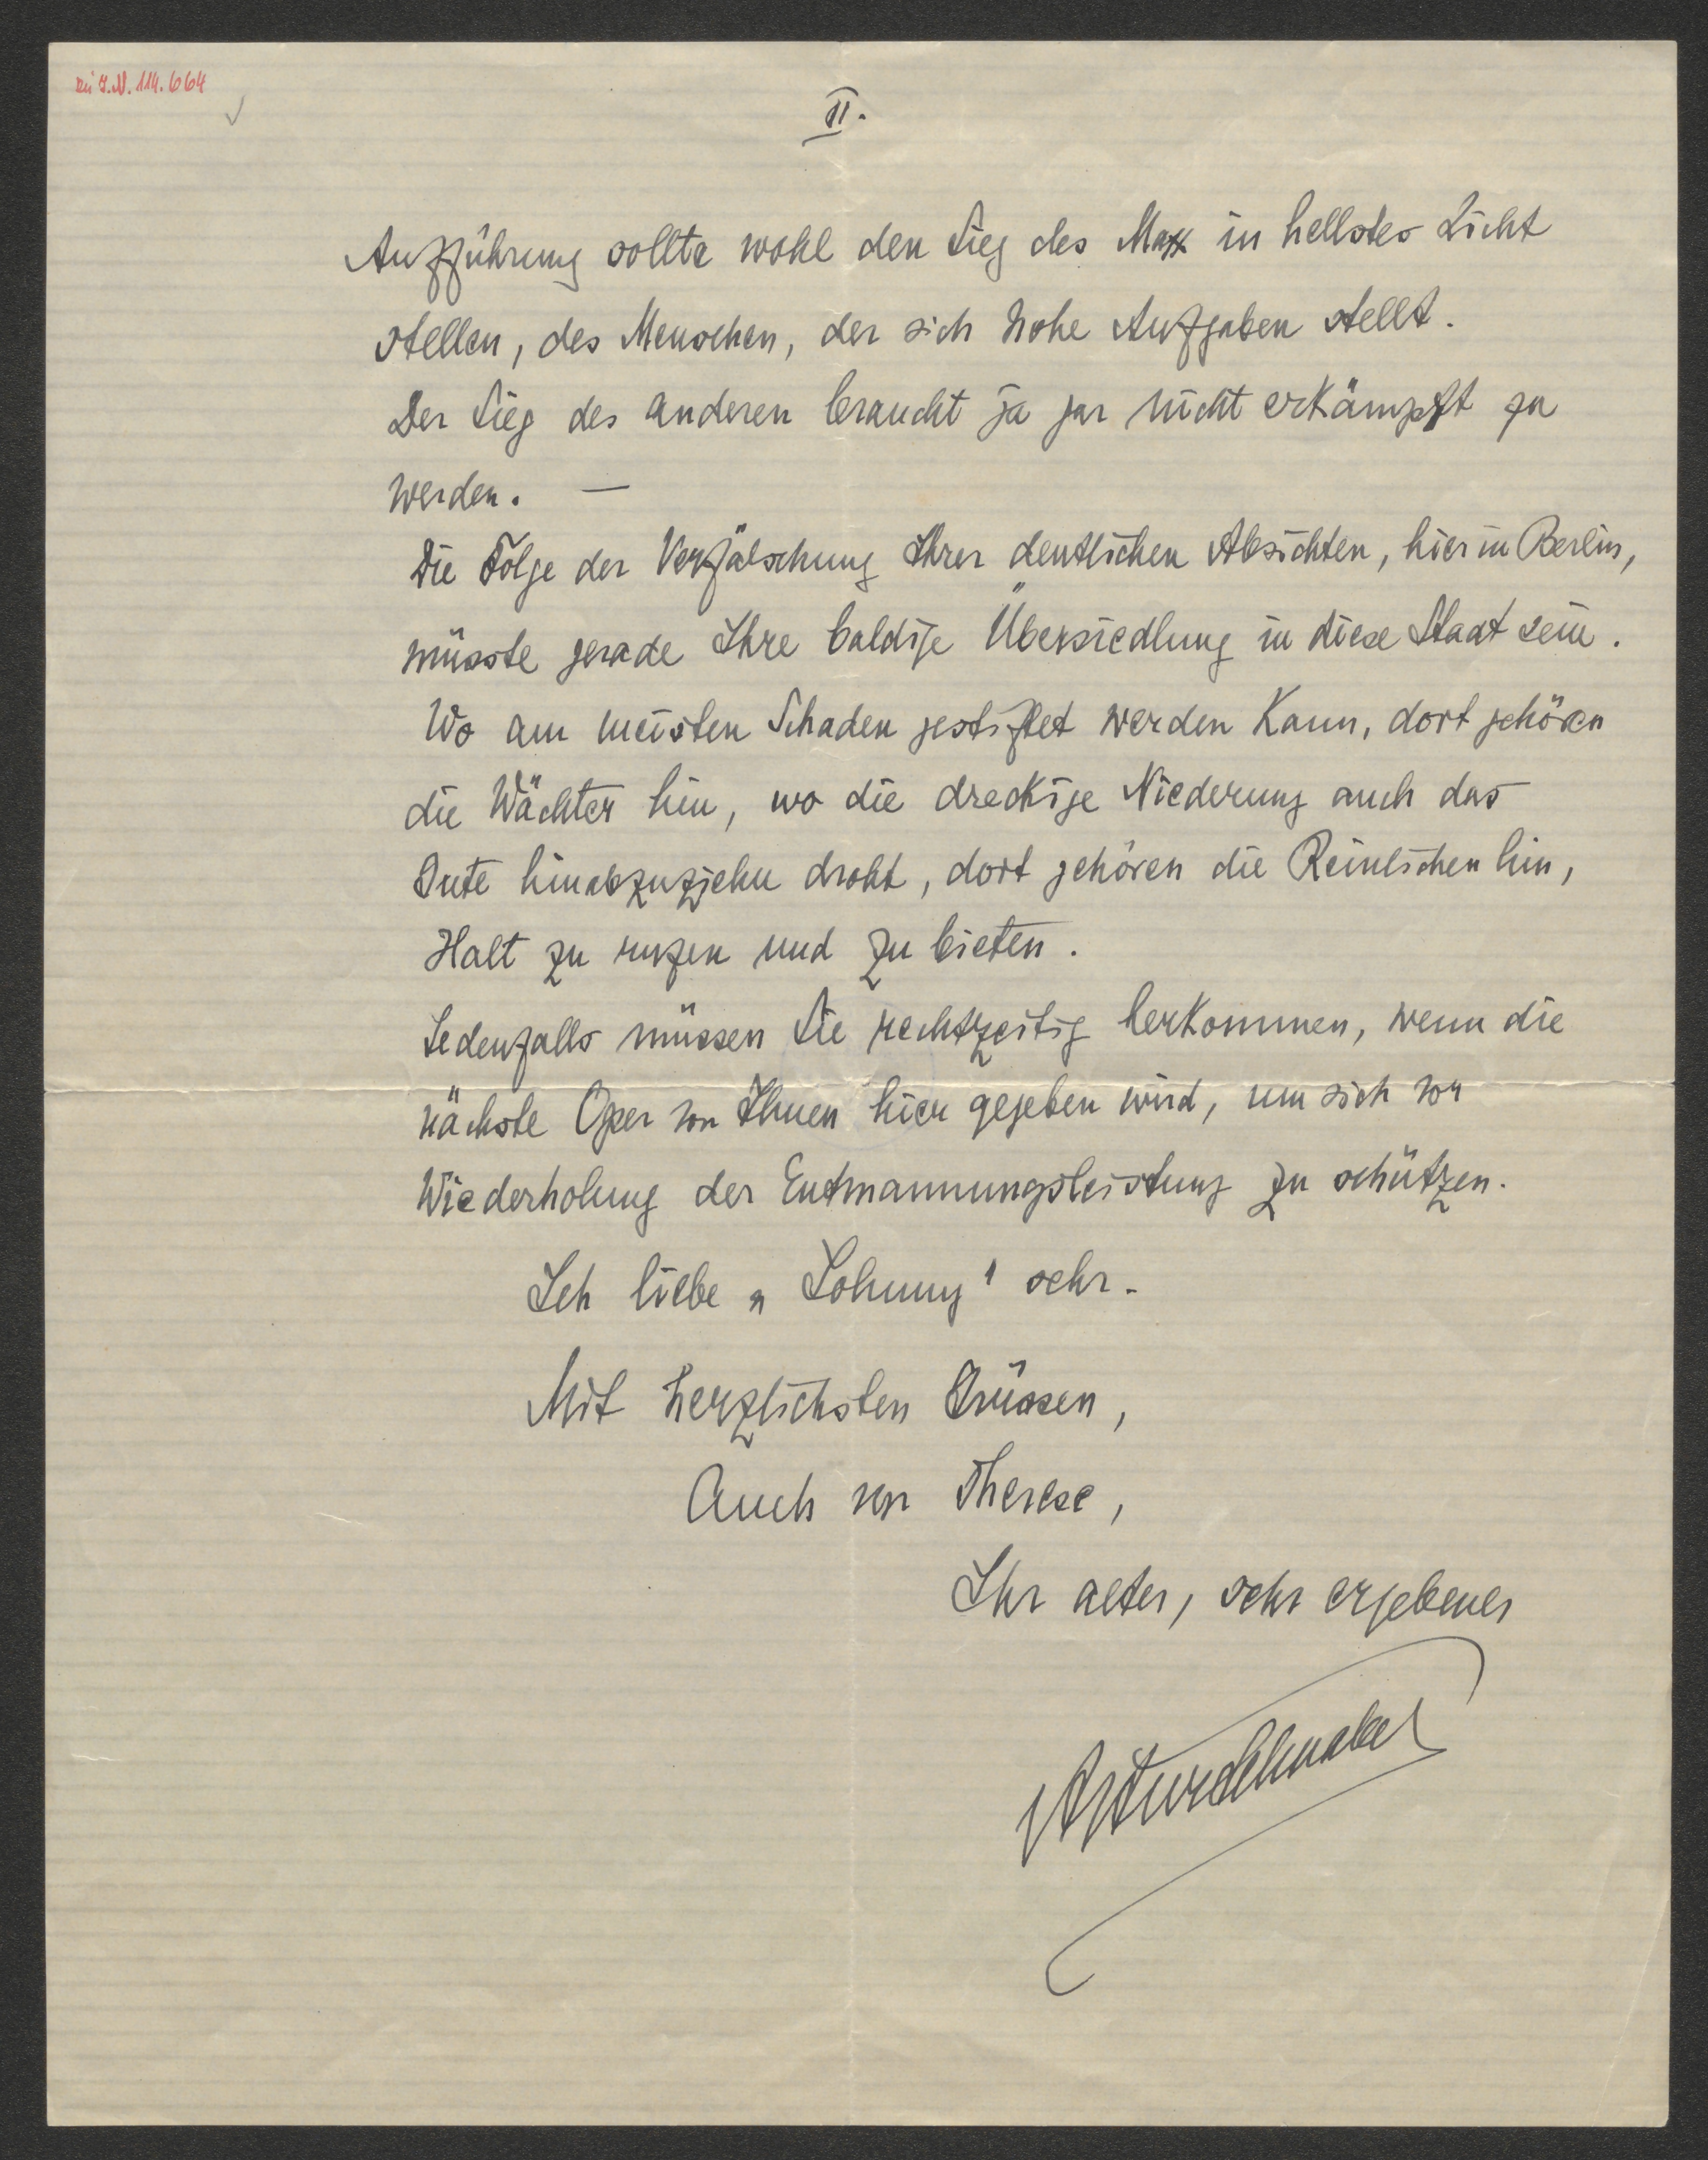 zu I.N. 114.664
II.
Aufführung sollte wohl den Sieg des Max in hellstes Licht
stellen, des Menschen, der sich hohe Aufgaben stellt.
Der Sieg des anderen braucht ja gar nicht erkämpft zu
werden. —
Die Folge der Verfälschung Ihrer deutlichen Absichten, hier in Berlin,
müsste gerade Ihre baldige Übersiedlung in diese Stadt sein.
Wo am meisten Schaden gestiftet werden kann, dort gehören
die Wächter hin, wo die dreckige Niederung auch das
Gute hinabzuziehn droht, dort gehören die Reinlichen hin,
Halt zu rufen und zu bieten.
Jedenfalls müssen Sie rechtzeitig herkommen, wenn die
nächste Oper von Ihnen hier gegeben wird, um sich vor
Wiederholung der Entmannungsleistung zu schützen.
Ich liebe „Johnny" sehr.
Mit herzlichsten Grüssen,
Auch von Therese,
Ihr alter, sehr ergebener
Artur Schnabel